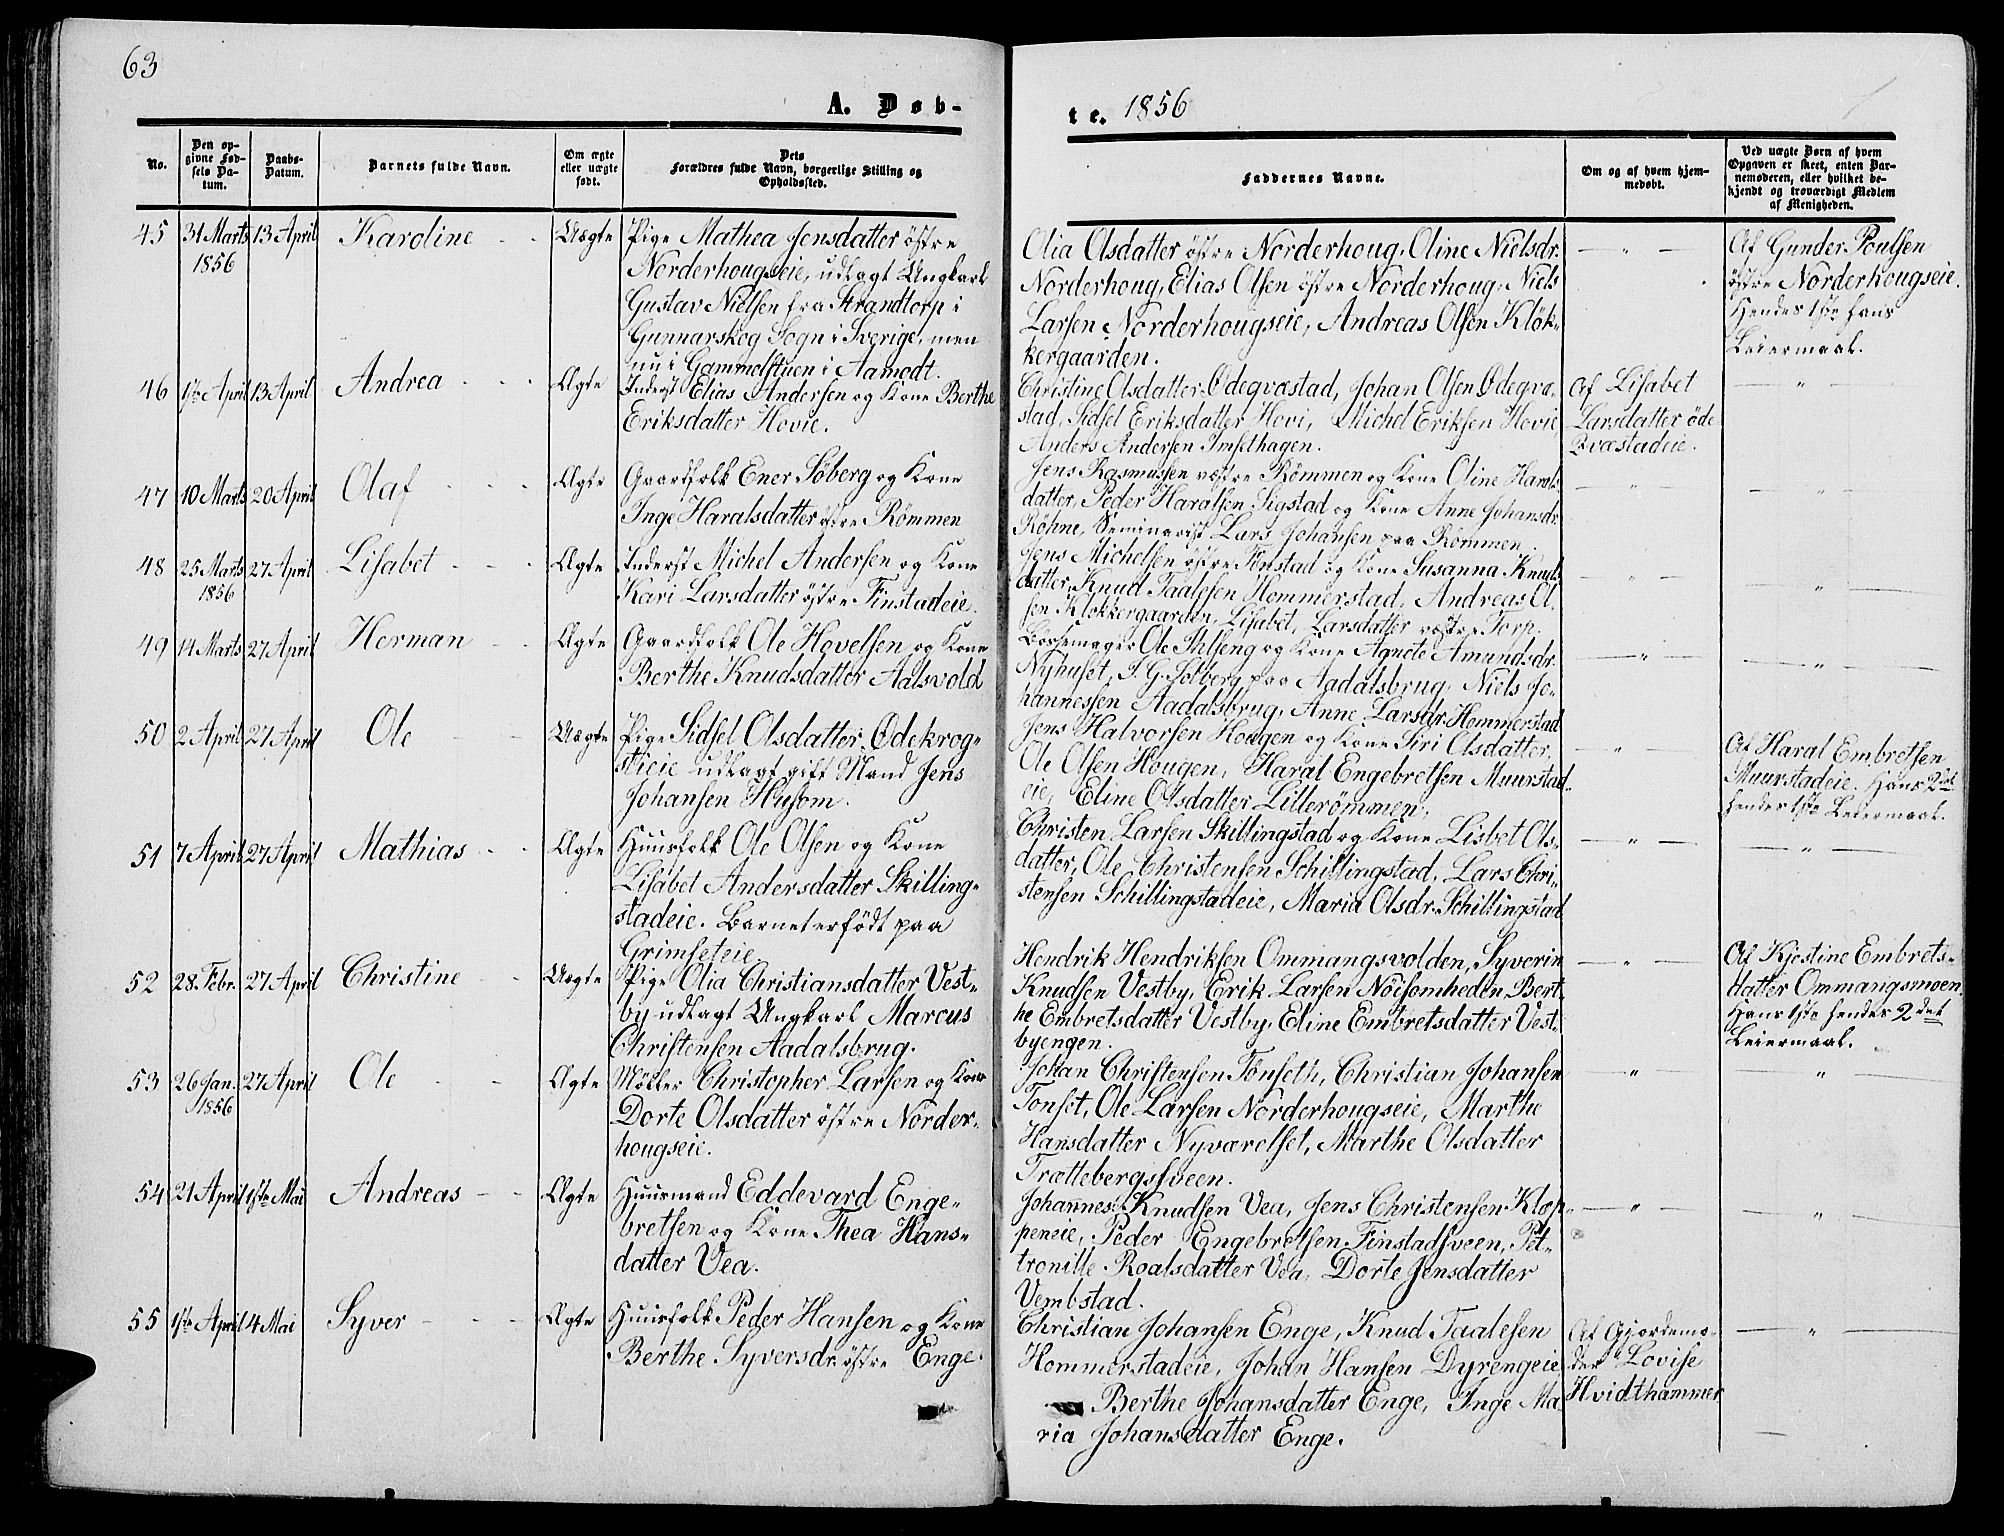 63
A. Døb-
te. 1856
No.
Den op-
givne Fød-
sels Da-
tum.
Daabs-
Datum.
Barnets fulde Navn.
Om ægte
eller uægte
født.
Dets
Forældres fulde Navn, borgerlige Stilling og
Opholdssted.
Faddernes Navne.
Om og af hvem hjem-
medøbt.
Ved uægte Børn af hvem
Opgaven er skeet, enten Bar-
nemoderen, eller hvilket be-
kjendt og troværdigt Medlem
af Menigheden.
45 31 Marts 13 April Karoline Uægte Pige Mathea Jensdatter østre
1856
Norderhougseie, udlagt Ungkarl
Gustav Nielsen fra Strandtorp i
Gunnarskog Sogn i Sverige, men
nu i Gammelstuen i Aamodt.
Olia Olsdatter østre Norderhoug, Oline Nielsdr.
Norderhoug, Elias Olsen østre Norderhoug, Niels
Larsen Norderhougseie, Andreas Olsen Klök-
kergaarden.
Af Gunder Poulsen
østre Norderhougseie.
Hendes 1ste hans
Leiermaal.
46 1ste April 13 April Andrea Ægte Inderst Elias Andersen og Kone Berthe
Eriksdatter Hovie.
Christine Olsdatter Ødegvæstad, Johan Olsen Ødegvæ-
stad, Sidsel Eriksdatter Hovi, Michel Eriksen Hovie
Anders Andersen Imsethagen.
Af Lisabet
Larsdatter øde
Qvæstadeie.
47 10 Marts 20 April Olaf Ægte Gaardfolk Ener Søberg og Kone
Inge Haralsdatter østre Römmen
Jens Rasmussen vestre Römmen og Kone Oline Harals-
datter, Peder Haralsen Sigstad og Kone Anne Johansdr.
Röhne, Seminarist Lars Johansen paa Rommen.
48 25 Marts 27 April Lisabet Ægte Inderst Michel Andersen og Kone
1856
Kari Larsdatter østre Finstadeie.
Jens Michelsen østre Finstad og Kone Susanna Knuds-
datter, Knud Taalesen Hommerstad, Andreas Ol-
sen Klokkergaarden, Lisabet Larsdatter vestre Torp.
49 14 Marts 27 April Herman Ægte Gaardfolk Ole Hovelsen og Kone
Berthe Knudsdatter Aalsvold
Børsemager Ole Stilseng og Kone Agnete Amundsdr.
Nyhuset, I. G. Solberg paa Aadalsbrug, Niels Jo-
hannessen Aadalsbrug, Anne Larsdr. Hommerstad
50 2 April 27 April Ole Uægte Pige Sidsel Olsdatter Ødekrog-
stieie udlagt gift Mand Jens
Johansen Husom.
Jens Halvorsen Hougen og Kone Siri Olsdatter,
Ole Olsen Hougen, Haral Engebretsen Muurstad-
eie, Eline Olsdatter Lillerömmen.
Af Haral Embretsen
Muurstadeie. Hans 2det
hendes 1ste Leiermaal.
51 7 April 27 April Mathias Ægte Huusfolk Ole Olsen og Kone
Lisabet Andersdatter Skilling-
stadeie. Barnet er født paa
Grimseteie
Christen Larsen Skillingstad og Kone Lisbet Ols-
datter, Ole Christensen Schillingstad, Lars Chri-
stensen Schillingstadeie, Maria Olsdr. Schillingstad
52 28. Febr. 27 April Christine Uægte Pige Olia Christiansdatter Vest-
by udlagt Ungkarl Marcus
Christensen Aadalsbrug.
Hendrik Hendriksen Ommangsvolden, Syverin
Knudsen Vestby, Erik Larsen Nöisomheden, Bert-
he Embretsdatter Vestby, Eline Embretsdatter Vest-
byengen.
Af Kjestine Embrets-
datter Ommangsmoen.
Hans 1ste hendes 2det
Leiermaal.
53 26 Jan. 27 April Ole Ægte Møller Christopher Larsen og Kone
1856
Dorte Olsdatter østre Norder-
hougseie.
Johan Christensen Tönseth, Christian Johansen
Tonset, Ole Larsen Norderhougseie, Marthe
Hansdatter Nyværelset, Marthe Olsdatter
Trættebergsveen.
54 21 April 1ste Mai Andreas Ægte Huusmand Eddevard Enge-
bretsen og Kone Thea Hans-
datter Vea.
Johannes Knudsen Vea, Jens Christensen Klop-
peneie, Peder Engebretsen Finstadsveen, Pet-
tronille Roalsdatter Vea, Dorte Jensdatter
Vembstad.
55 1ste April 4 Mai Syver Ægte Huusfolk Peder Hansen og Kone
Berthe Syversdr. østre Enge.
Christian Johansen Enge, Knud Taalesen
Hommerstadeie, Johan Hansen Dyrengeie
Berthe Johansdatter Enge, Inge Ma-
ria Johansdatter Enge.
Af Gjordemo-
der Lovise
Hvidthammer